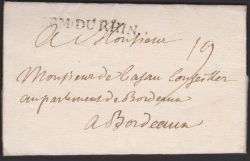 EM.DU RHIN.
A Monsieur
19
Monsieur de Casau Conseiller
au parlement de Bordeaux
a Bordeaux